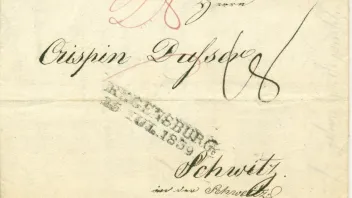 Herrn
Crispin Dasser
REGENSBURG.
25 JUL. 1839
Schwitz.
in der Schweiz.